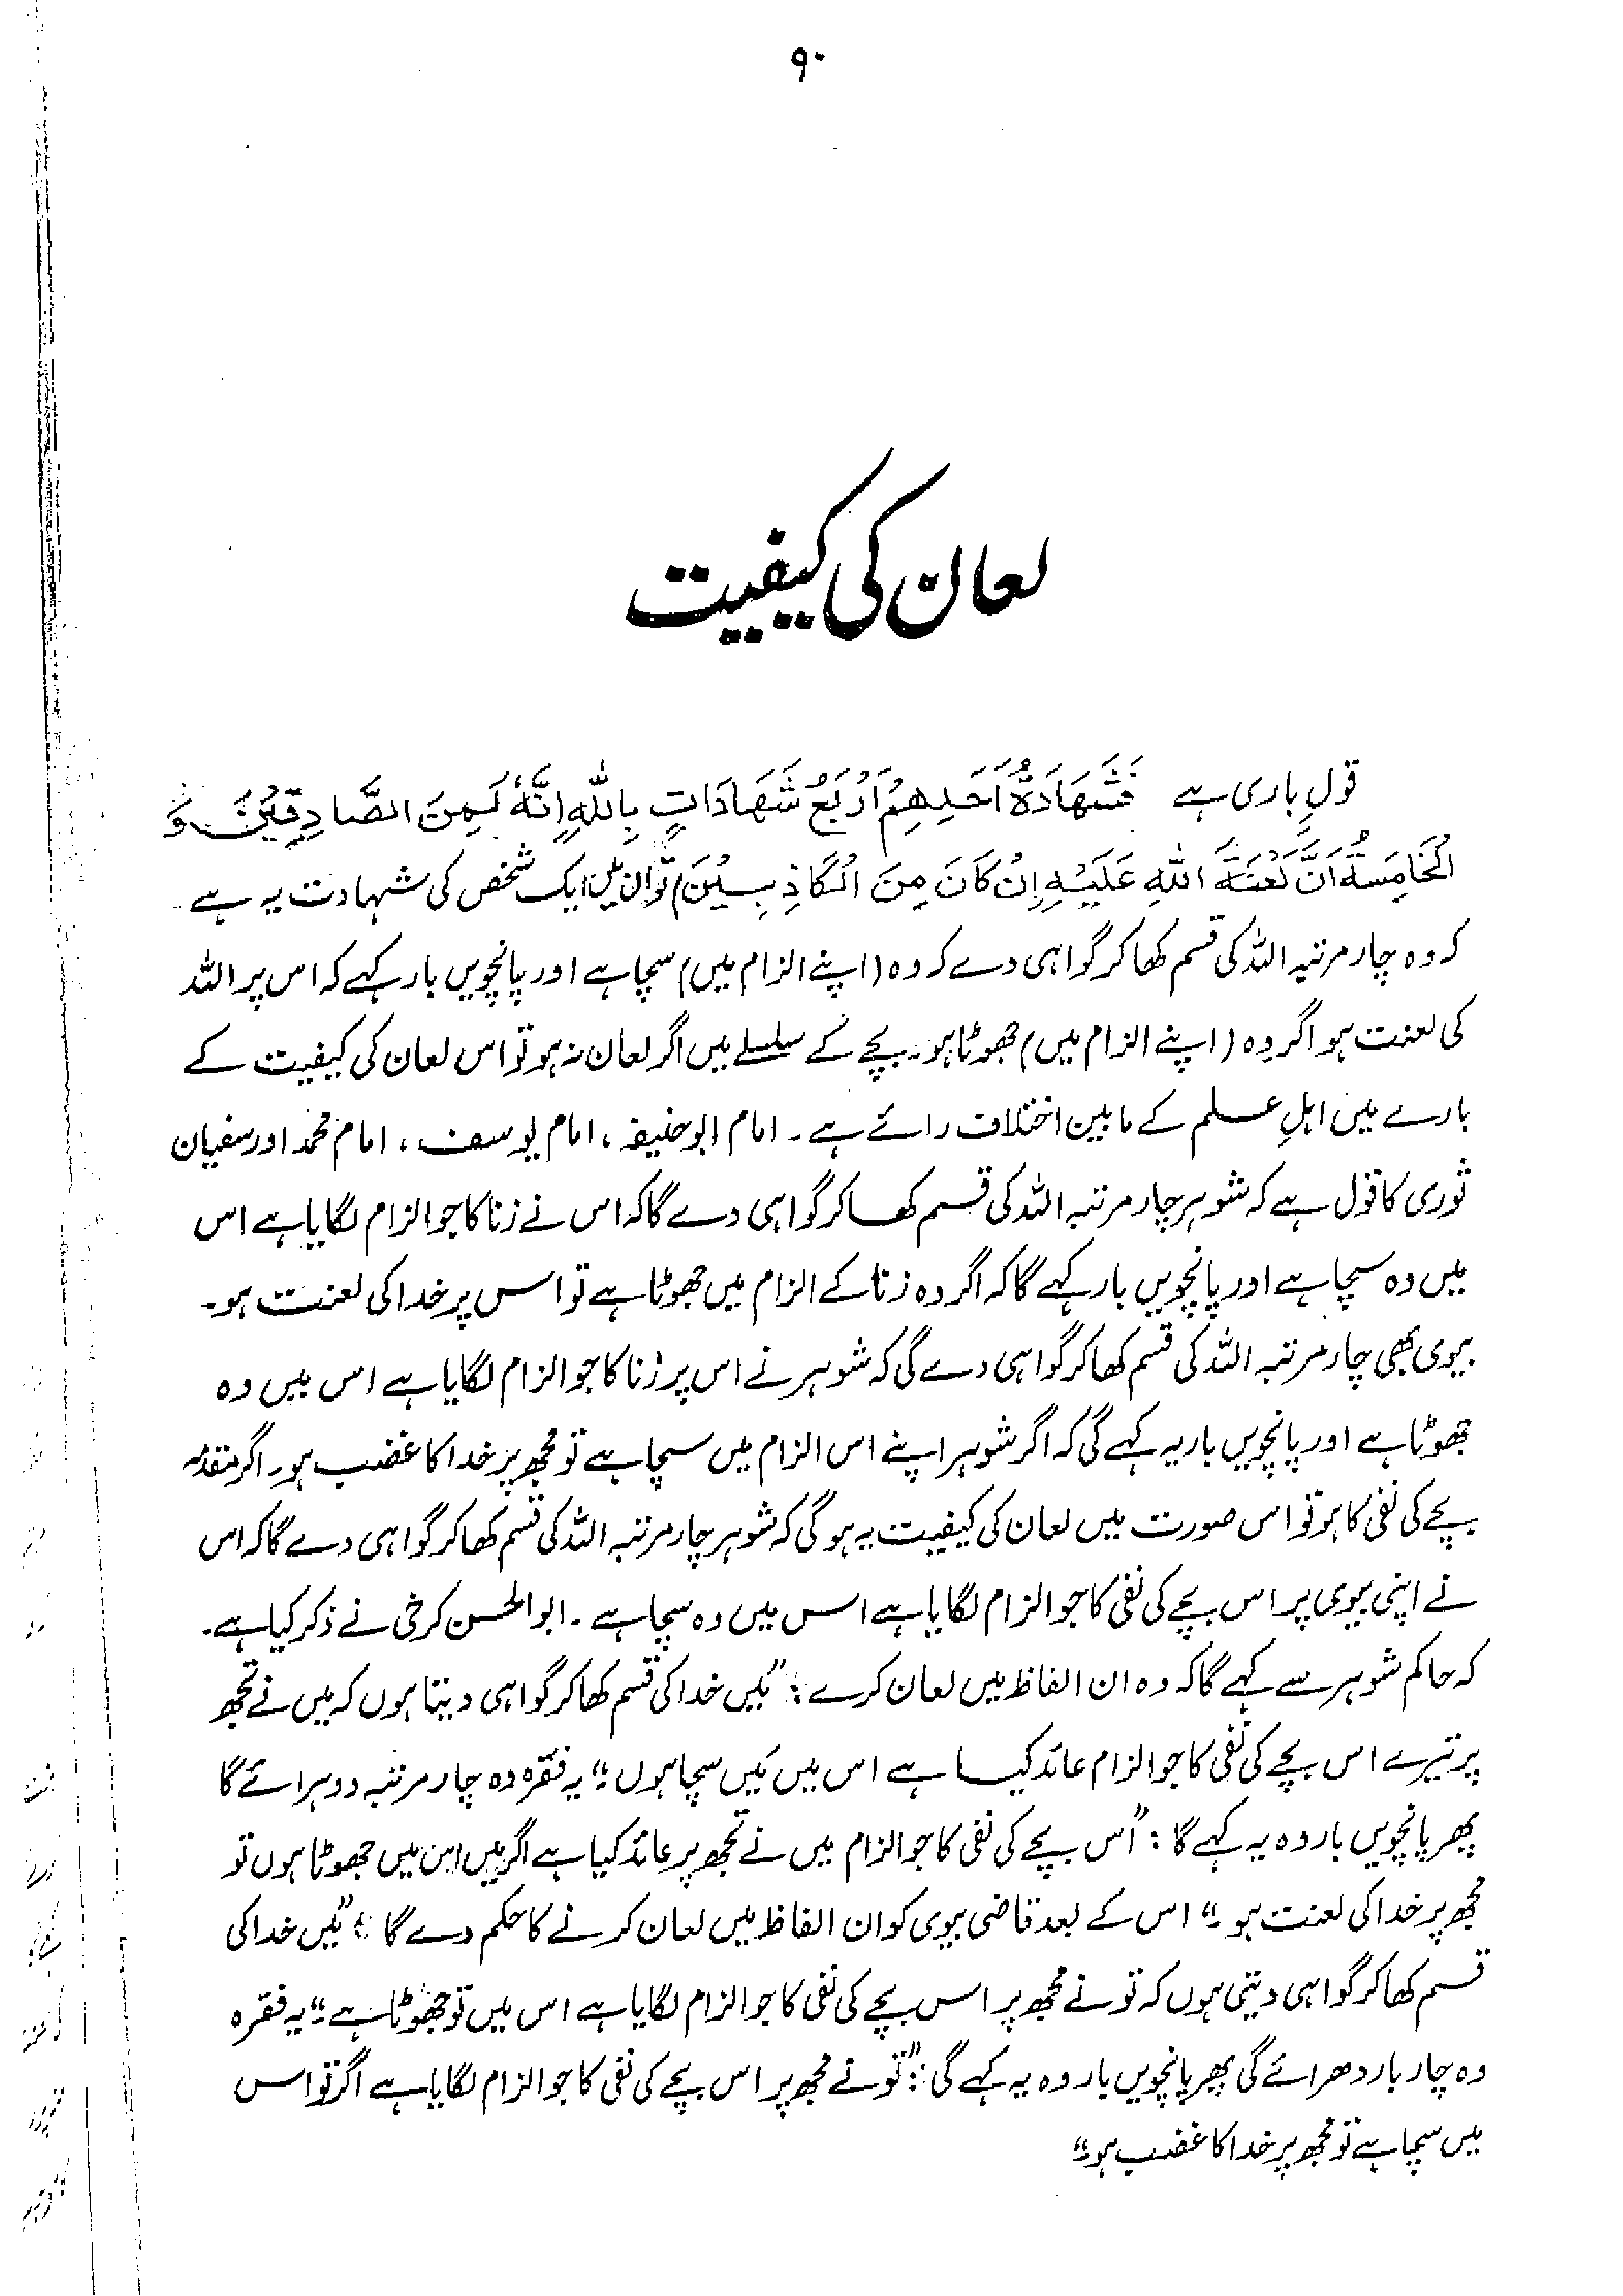 ۹۰
لعان کی کیفیت
قولِ باری ہے فَشَهَادَةُ اَحَدِهِمْ اَرْبَعُ شَهَادَاتٍ بِاللّٰهِ اِنَّهٗ لَمِنَ الصَّادِقِيْنَ وَ
الْخَامِسَةُ اَنَّ لَعْنَةَ اللّٰهِ عَلَيْهِ اِنْ كَانَ مِنَ الْكَاذِبِيْنَ) تو ان میں ایک شخص کی شہادت یہ ہے
کہ وہ چار مرتبہ اللہ کی قسم کھا کر گواہی دے کہ وہ (اپنے الزام میں) سچا ہے اور پانچویں بار کہے کہ اس پر اللہ
کی لعنت ہو اگر وہ (اپنے الزام میں) جھوٹا ہو۔ بچے کے سلسلے میں اگر لعان نہ ہو تو اس لعان کی کیفیت کے
بارے میں اہلِ علم کے مابین اختلاف رائے ہے۔ امام ابو حنیفہ، امام یوسف، امام محمد اور سفیان
ثوری کا قول ہے کہ شوہر چار مرتبہ اللہ کی قسم کھا کر گواہی دے گا کہ اس نے زنا کا جو الزام لگایا ہے اس
میں وہ سچا ہے اور پانچویں بار کہے گا کہ اگر وہ زنا کے الزام میں جھوٹا ہے تو اس پر خدا کی لعنت ہو۔
بیوی بھی چار مرتبہ اللہ کی قسم کھا کر گواہی دے گی کہ شوہر نے اس پر زنا کا جو الزام لگایا ہے اس میں وہ
جھوٹا ہے اور پانچویں بار یہ کہے گی کہ اگر شوہر اپنے اس الزام میں سچا ہے تو مجھ پر خدا کا غضب ہو۔ اگر مقدمہ
بچے کی نفی کا ہو تو اس صورت میں لعان کی کیفیت یہ ہو گی کہ شوہر چار مرتبہ اللہ کی قسم کھا کر گواہی دے گا کہ اس
نے اپنی بیوی پر اس بچے کی نفی کا جو الزام لگایا ہے اس میں وہ سچا ہے۔ ابوالحسن کرخی نے ذکر کیا ہے۔
کہ حاکم شوہر سے کہے گا کہ وہ ان الفاظ میں لعان کرے: "میں خدا کی قسم کھا کر گواہی دیتا ہوں کہ میں نے تجھ
پر تیرے اس بچے کی نفی کا جو الزام عائد کیا ہے اس میں میں سچا ہوں؛" یہ فقرہ وہ چار مرتبہ دوہرائے گا
پھر پانچویں بار وہ یہ کہے گا: "اس بچے کی نفی کا جو الزام میں نے تجھ پر عائد کیا ہے اگر میں اس میں جھوٹا ہوں تو
مجھ پر خدا کی لعنت ہو؛" اس کے بعد قاضی بیوی کو ان الفاظ میں لعان کرنے کا حکم دے گا: "میں خدا کی
قسم کھا کر گواہی دیتی ہوں کہ تو نے مجھ پر اس بچے کی نفی کا جو الزام لگایا ہے اس میں تو جھوٹا ہے؛" یہ فقرہ
وہ چار بار دھرائے گی پھر پانچویں بار وہ یہ کہے گی: "تو نے مجھ پر اس بچے کی نفی کا جو الزام لگایا ہے اگر تو اس
میں سچا ہے تو مجھ پر خدا کا غضب ہو؛"